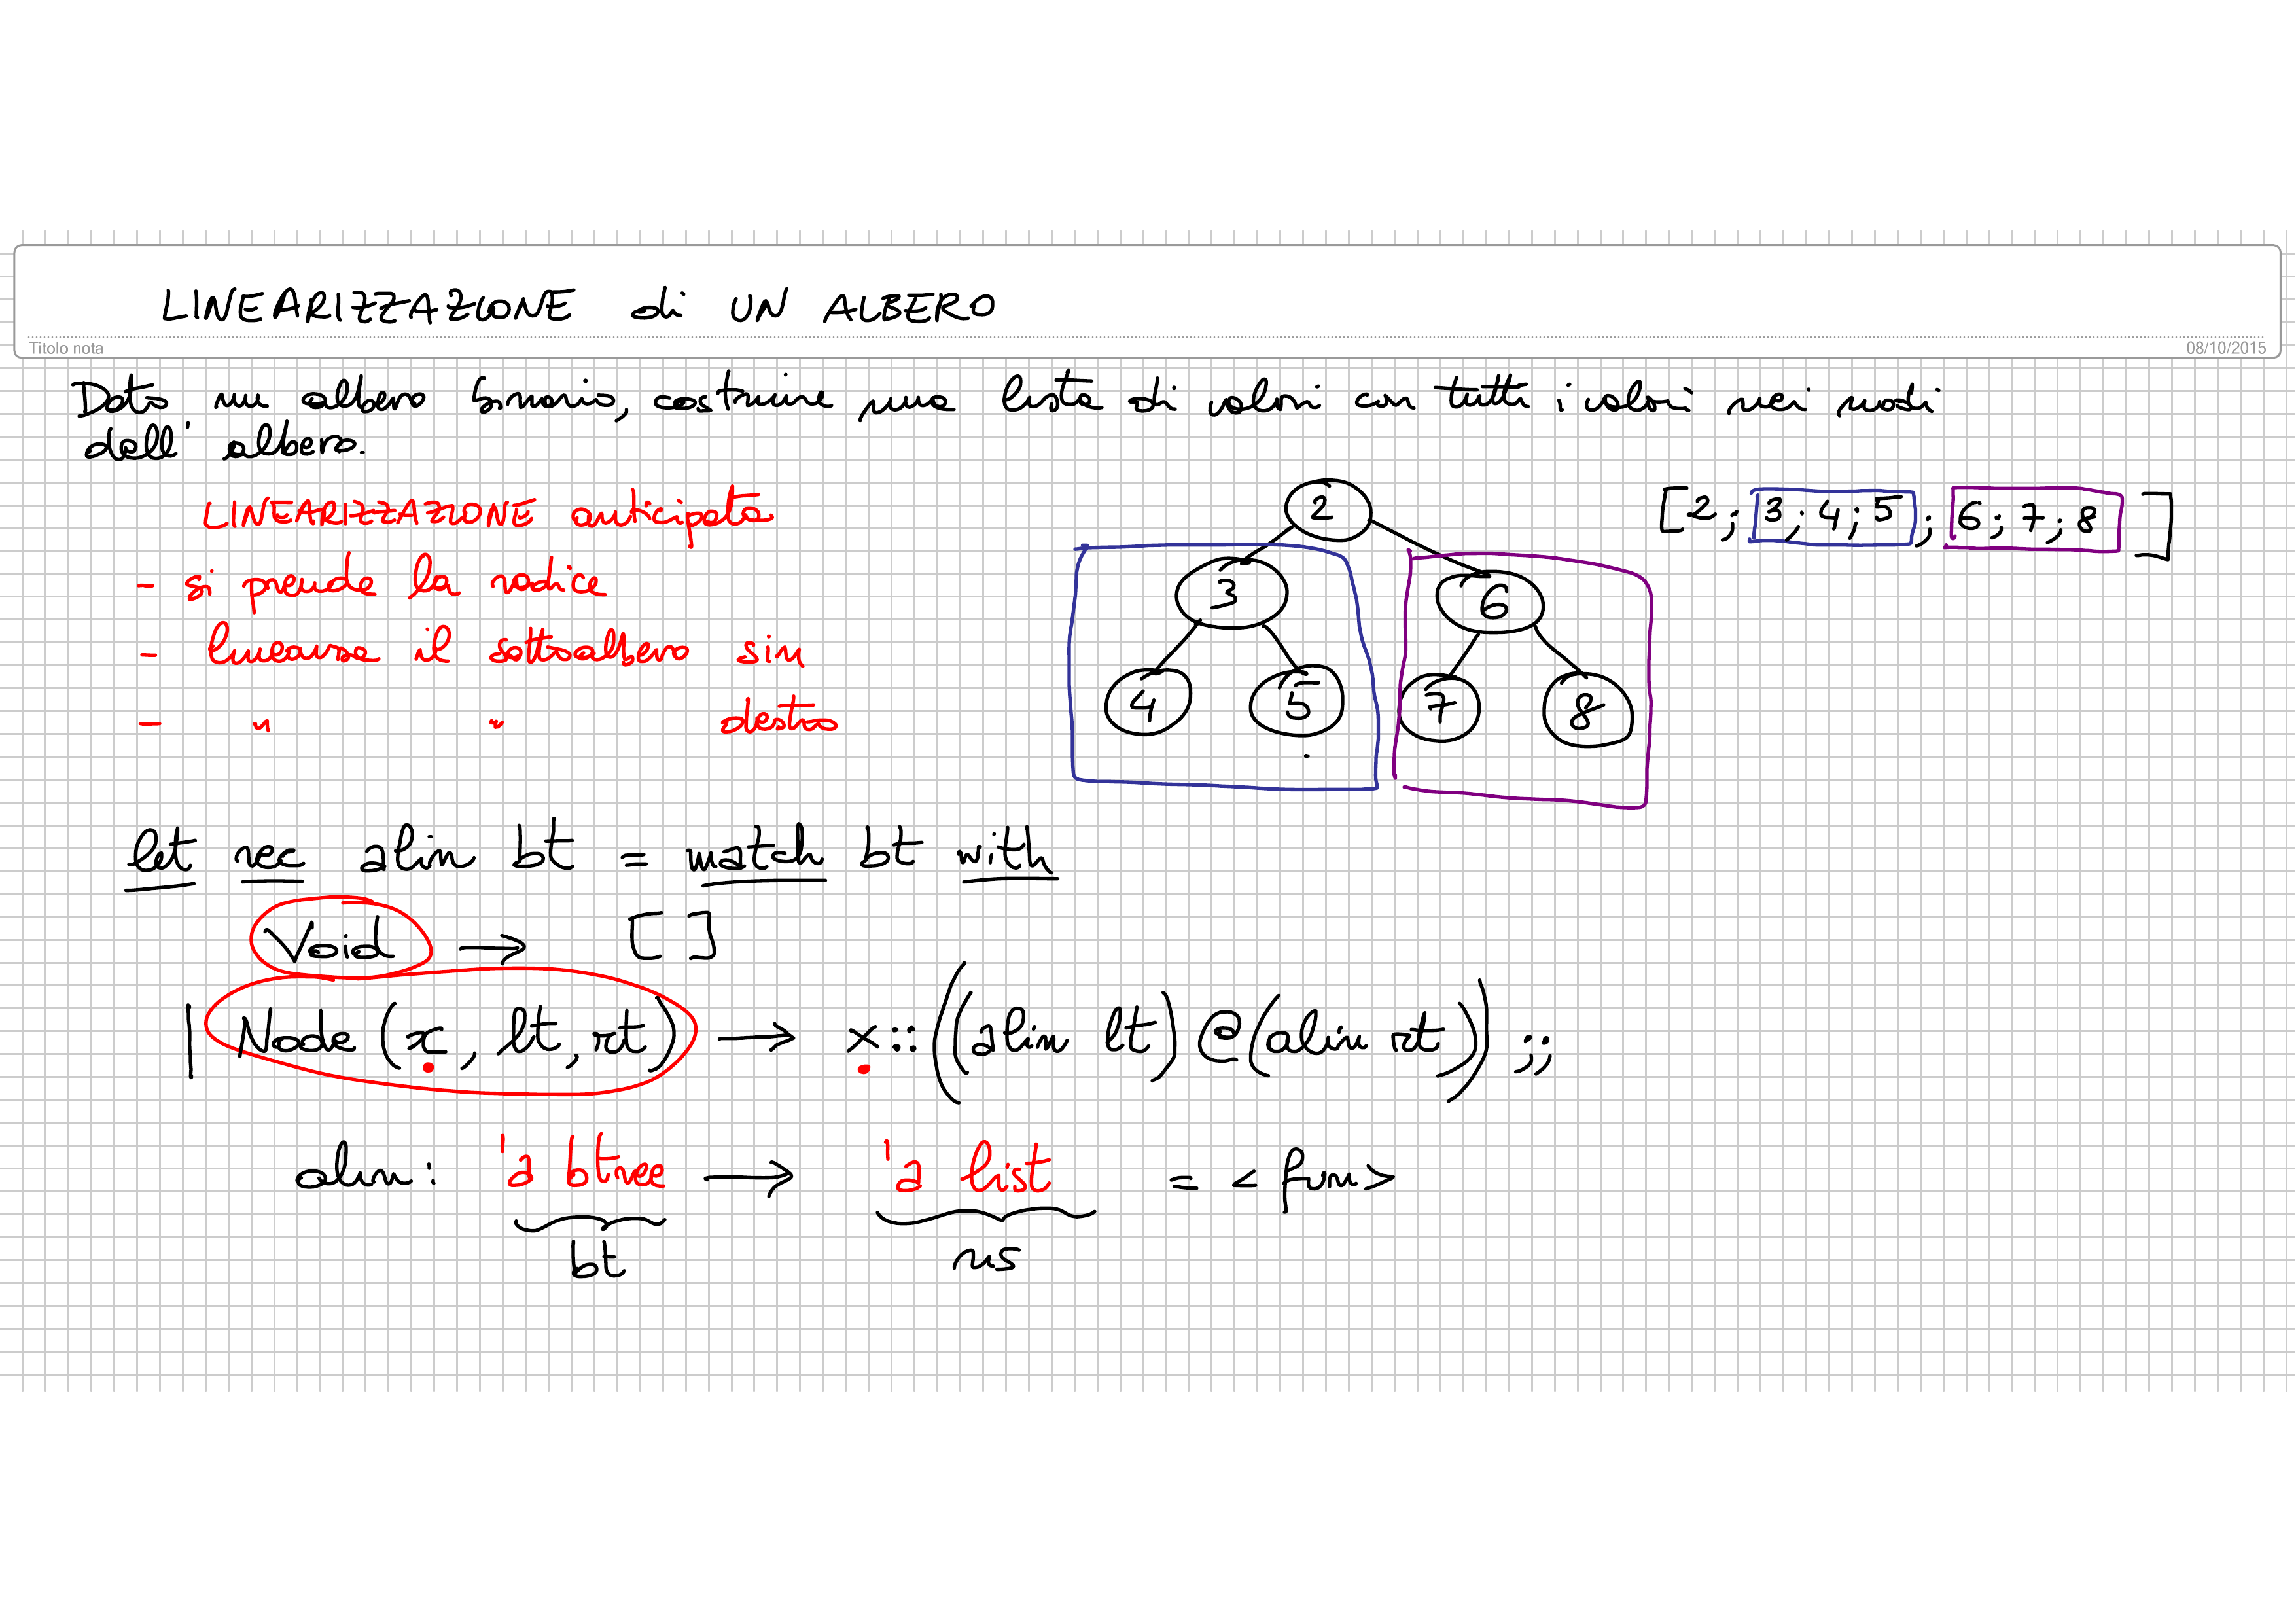 LINEARIZZAZIONE di UN ALBERO
Titolo nota
08/10/2015
Dato un albero binario, costruire una lista di valori con tutti i valori nei nodi
dell' albero.
LINEARIZZAZIONE anticipata
- si prende la radice
- linearizza il sottoalbero sin
- " " destro
2
3
6
4
5
7
8
[2; 3; 4; 5; 6; 7; 8]
let rec alin bt = match bt with
Void → []
| Node (x, lt, rt) → x::((alin lt)@(alin rt)) ;;
alin: 'a btree → 'a list = <fun>
bt
ris